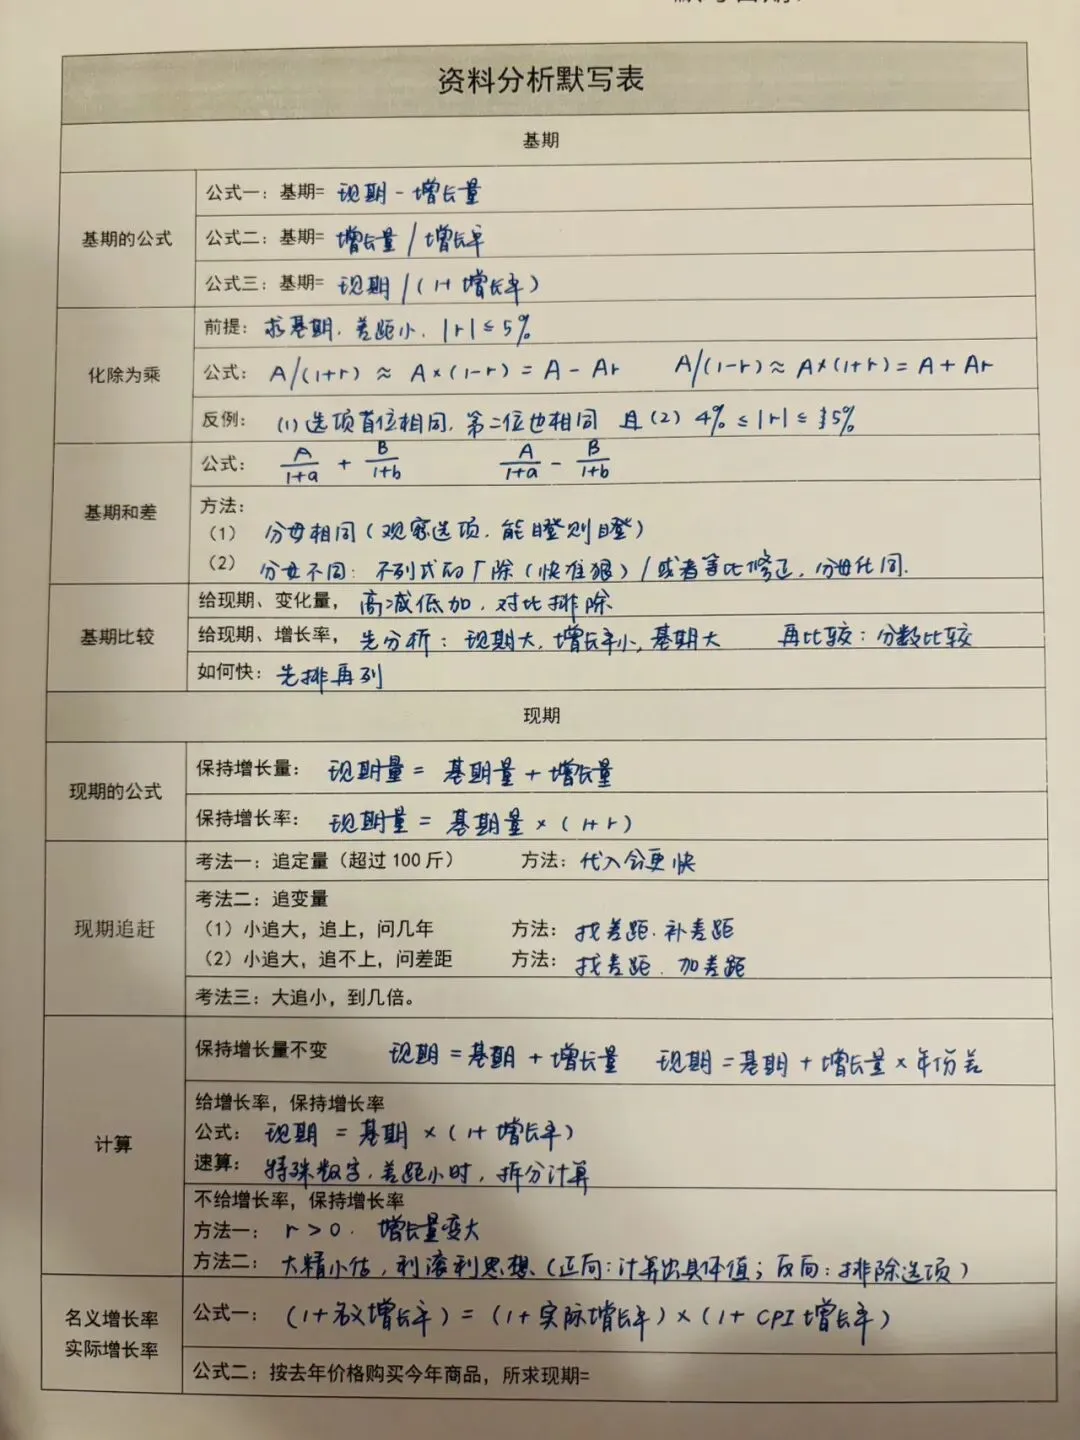 资料分析默写表
基期
基期的公式
公式一：基期= 现期 - 增长量
公式二：基期= 增长量 / 增长率
公式三：基期= 现期 / (1+ 增长率)
化除为乘
前提：求基期，差距小，|r| ≤ 5%
公式：A/(1+r) ≈ A×(1-r) = A - Ar A/(1-r) ≈ A×(1+r) = A + Ar
反例：(1) 选项首位相同，第二位也相同 且 (2) 4% ≤ |r| ≤ 5%
基期和差
公式：A/1+a + B/1+b A/1+a - B/1+b
方法：
（1） 分母相同 (观察选项，能瞪则瞪)
（2） 分母不同：不列式的厂除 (快准狠) / 或者等比修正，分母化同.
基期比较
给现期、变化量，高减低加，对比排除
给现期、增长率，先分析：现期大，增长率小，基期大 再比较：分数比较
如何快：先排再列
现期
现期的公式
保持增长量： 现期量 = 基期量 + 增长量
保持增长率： 现期量 = 基期量 × (1+r)
现期追赶
考法一：追定量（超过 100 斤） 方法：代入会更快
考法二：追变量
（1）小追大，追上，问几年 方法：找差距，补差距
（2）小追大，追不上，问差距 方法：找差距，加差距
考法三：大追小，到几倍。
计算
保持增长量不变 现期 = 基期 + 增长量 现期 = 基期 + 增长量 × 年份差
给增长率，保持增长率
公式：现期 = 基期 × (1+ 增长率)
速算：特殊数字，差距小时，拆分计算
不给增长率，保持增长率
方法一：r > 0，增长量变大
方法二：大精小估，利滚利思想 (正向：计算出具体值；反向：排除选项)
名义增长率
实际增长率
公式一：(1+名义增长率) = (1+实际增长率) × (1+ CPI 增长率)
公式二：按去年价格购买今年商品，所求现期=